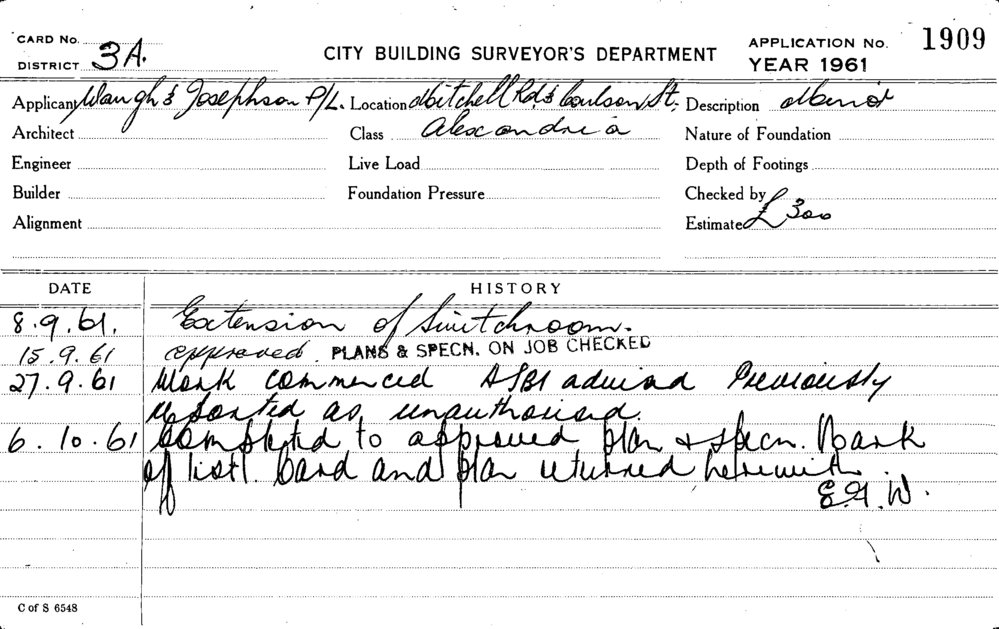 CARD No.
DISTRICT 3A.
CITY BUILDING SURVEYOR'S DEPARTMENT
APPLICATION No. 1909
YEAR 1961
Applicant Waugh & Josephson P/L. Location Mitchell Rd. & Coulson St. Description Minor
Architect Class Alexandria Nature of Foundation
Engineer Live Load Depth of Footings
Builder Foundation Pressure Checked by
Alignment Estimate £300
DATE HISTORY
8.9.61. Extension of Switchroom.
15.9.61 approved. PLANS & SPECN. ON JOB CHECKED
27.9.61 Work commenced advised Previously
reported as unauthorised.
6.10.61 Completed to approved plan & specn. Mark
off card and plan returned herewith.
W.
C of S 6548